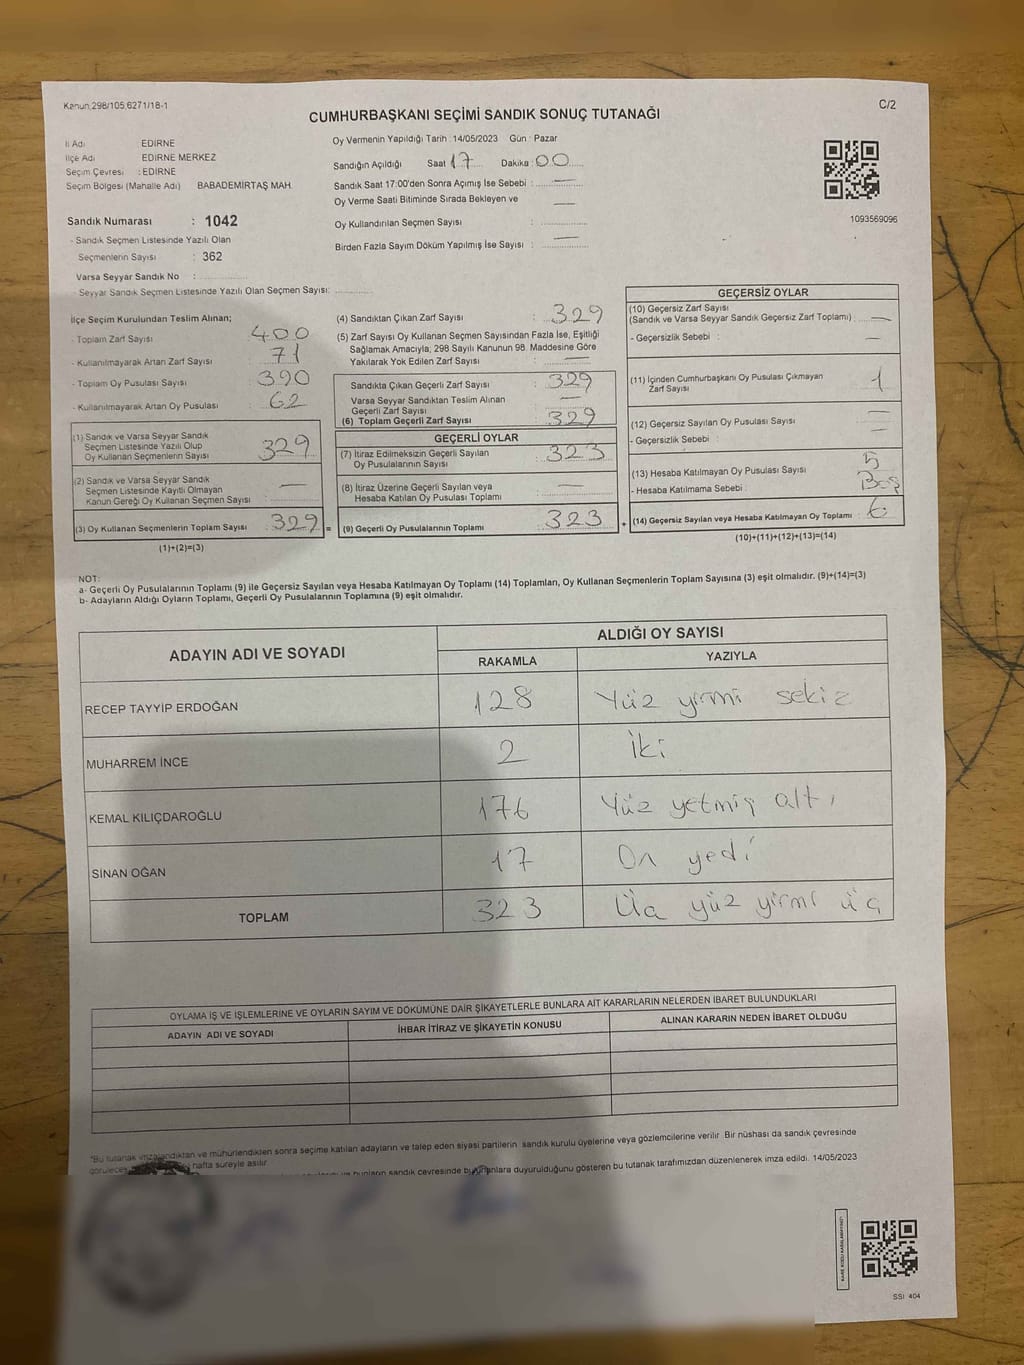 Kanun:298/105,6271/18-1
C/2
CUMHURBAŞKANI SEÇİMİ SANDIK SONUÇ TUTANAĞI
İl Adı EDİRNE
İlçe Adı EDİRNE MERKEZ
Seçim Çevresi : EDİRNE
Seçim Bölgesi (Mahalle Adı) BABADEMİRTAŞ MAH.
Oy Vermenin Yapıldığı Tarih : 14/05/2023 Gün : Pazar
Sandığın Açıldığı Saat 17 Dakika : 00
Sandık Saat 17:00'den Sonra Açımış İse Sebebi : —
Oy Verme Saati Bitiminde Sırada Bekleyen ve —
Oy Kullandırılan Seçmen Sayısı :
Birden Fazla Sayım Döküm Yapılmış İse Sayısı : —
1093569096
Sandık Numarası : 1042
- Sandık Seçmen Listesinde Yazılı Olan
Seçmenlerin Sayısı : 362
Varsa Seyyar Sandık No :
- Seyyar Sandık Seçmen Listesinde Yazılı Olan Seçmen Sayısı:
İlçe Seçim Kurulundan Teslim Alınan;
- Toplam Zarf Sayısı : 400
- Kullanılmayarak Artan Zarf Sayısı : 71
- Toplam Oy Pusulası Sayısı : 390
- Kullanılmayarak Artan Oy Pusulası : 62
(1) Sandık ve Varsa Seyyar Sandık
Seçmen Listesinde Yazılı Olup
Oy Kullanan Seçmenlerin Sayısı : 329
(2) Sandık ve Varsa Seyyar Sandık
Seçmen Listesinde Kayıtlı Olmayan
Kanun Gereği Oy Kullanan Seçmen Sayısı : —
(3) Oy Kullanan Seçmenlerin Toplam Sayısı : 329 =
(1)+(2)=(3)
(4) Sandıktan Çıkan Zarf Sayısı : 329
(5) Zarf Sayısı Oy Kullanan Seçmen Sayısından Fazla İse, Eşitliği
Sağlamak Amacıyla; 298 Sayılı Kanunun 98. Maddesine Göre
Yakılarak Yok Edilen Zarf Sayısı : —
Sandıkta Çıkan Geçerli Zarf Sayısı : 329
Varsa Seyyar Sandıktan Teslim Alınan
Geçerli Zarf Sayısı : —
(6) Toplam Geçerli Zarf Sayısı : 329
GEÇERLİ OYLAR
(7) İtiraz Edilmeksizin Geçerli Sayılan
Oy Pusulalarının Sayısı : 323
(8) İtiraz Üzerine Geçerli Sayılan veya
Hesaba Katılan Oy Pusulası Toplamı : —
(9) Geçerli Oy Pusulalarının Toplamı : 323 +
GEÇERSİZ OYLAR
(10) Geçersiz Zarf Sayısı
(Sandık ve Varsa Seyyar Sandık Geçersiz Zarf Toplamı) : —
- Geçersizlik Sebebi : —
(11) İçinden Cumhurbaşkanı Oy Pusulası Çıkmayan
Zarf Sayısı : 1
(12) Geçersiz Sayılan Oy Pusulası Sayısı : —
- Geçersizlik Sebebi : —
(13) Hesaba Katılmayan Oy Pusulası Sayısı : 5
- Hesaba Katılmama Sebebi : Boş
(14) Geçersiz Sayılan veya Hesaba Katılmayan Oy Toplamı : 6
(10)+(11)+(12)+(13)=(14)
NOT:
a- Geçerli Oy Pusulalarının Toplamı (9) ile Geçersiz Sayılan veya Hesaba Katılmayan Oy Toplamı (14) Toplamları, Oy Kullanan Seçmenlerin Toplam Sayısına (3) eşit olmalıdır. (9)+(14)=(3)
b- Adayların Aldığı Oyların Toplamı, Geçerli Oy Pusulalarının Toplamına (9) eşit olmalıdır.
ADAYIN ADI VE SOYADI
ALDIĞI OY SAYISI
RAKAMLA YAZIYLA
RECEP TAYYİP ERDOĞAN 128 Yüz yirmi sekiz
MUHARREM İNCE 2 İki
KEMAL KILIÇDAROĞLU 176 Yüz yetmiş altı
SİNAN OĞAN 17 On yedi
TOPLAM 323 Üç yüz yirmi üç
OYLAMA İŞ VE İŞLEMLERİNE VE OYLARIN SAYIM VE DÖKÜMÜNE DAİR ŞİKAYETLERLE BUNLARA AİT KARARLARIN NELERDEN İBARET BULUNDUKLARI
ADAYIN ADI VE SOYADI İHBAR İTİRAZ VE ŞİKAYETİN KONUSU ALINAN KARARIN NEDEN İBARET OLDUĞU
*Bu tutanak imzalandıktan ve mühürlendikten sonra seçime katılan adayların ve talep eden siyasi partilerin sandık kurulu üyelerine veya gözlemcilerine verilir. Bir nüshası da sandık çevresinde
görülecek hafta süreyle asılır.
bunların sandık çevresinde bulunanlara duyurulduğunu gösteren bu tutanak tarafımızdan düzenlenerek imza edildi. 14/05/2023
SSI 404